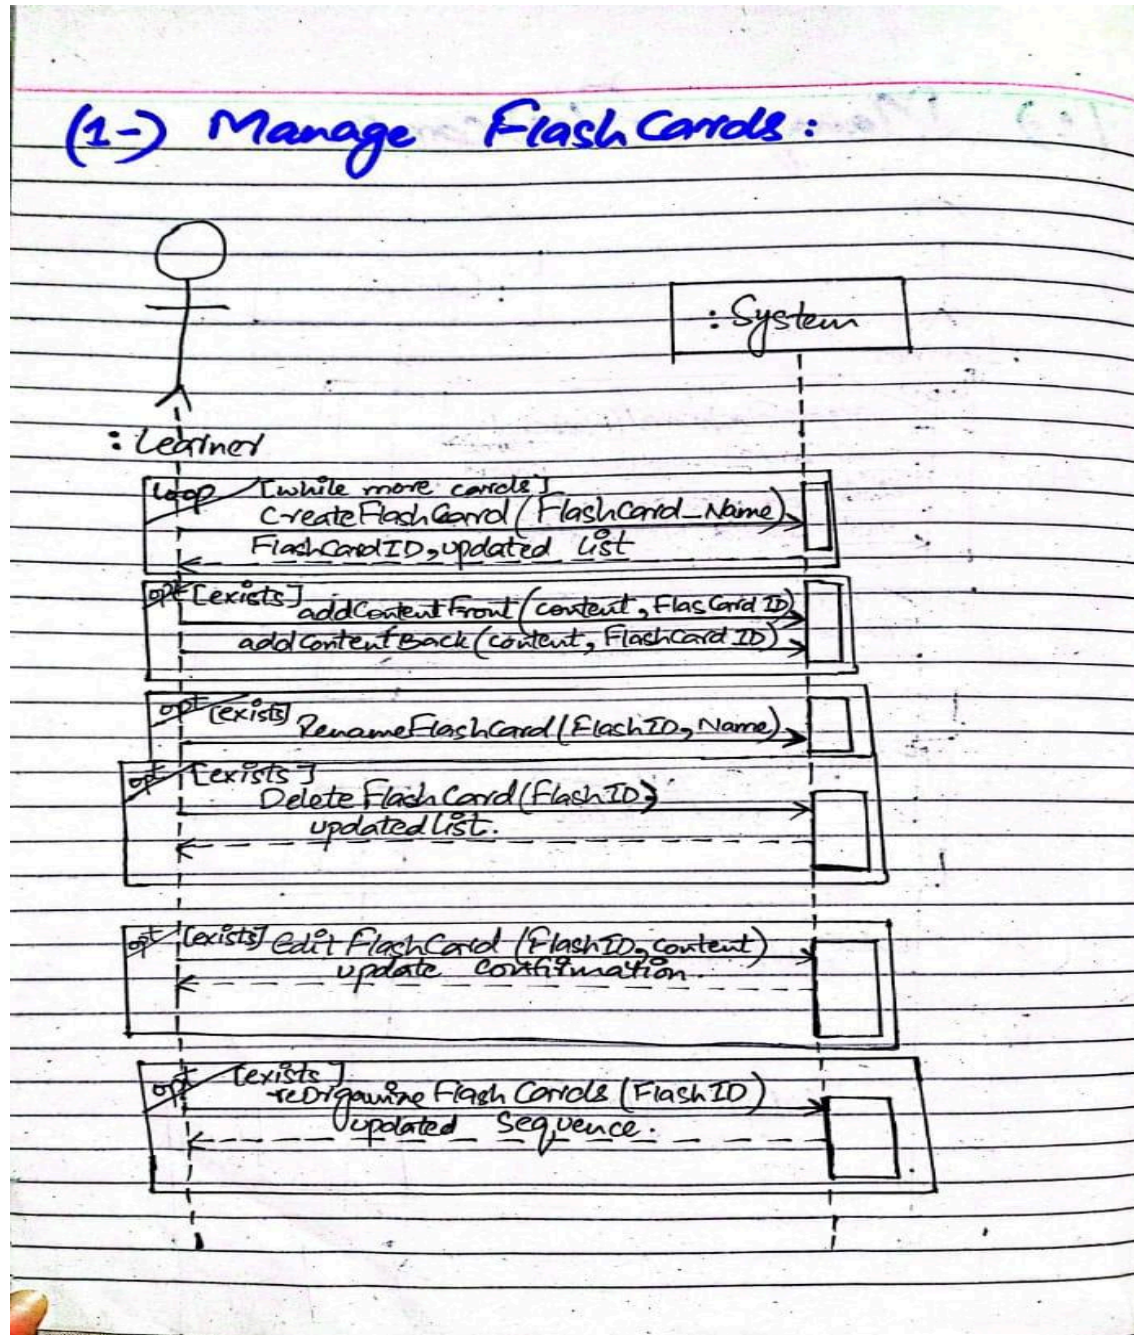 (1-) Manage FlashCards:
: System
: Learner
Loop [while more cards]
createFlashCard(FlashCard_Name)
FlashCardID, updated list
opt [exists]
addContentFront(content, FlasCardID)
addContentBack(content, FlashCardID)
opt [exists]
RenameFlashCard(FlashID, Name)
opt [exists]
Delete FlashCard(FlashID)
updated list.
opt [exists] Edit FlashCard (FlashID, content)
update confirmation.
opt [exists]
reOrganize Flash Cards (FlashID)
updated Sequence.